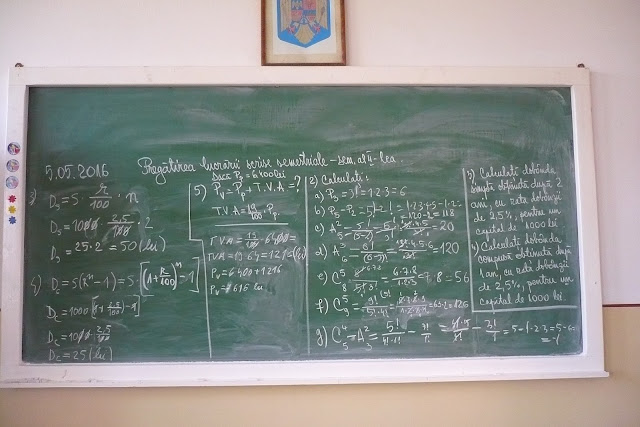 5.05.2016
Pregătirea lucrării scrise semestriale – sem. al II-lea.
3)
D_s = S · r/100 · n
D_s = 1000 · 2,5/100 · 2
D_s = 25 · 2 = 50 (lei)
4) D_c = S(Rⁿ - 1) = S · [(1 + r/100)ⁿ - 1]
D_c = 1000
D_c = 1000 · 2,5/100
D_c = 25 (lei)
dacă P_p = 6400 lei
5) P_v = P_p + T.V.A = ?
T.V.A = 19/100 · P_p
TVA = 19/100 · 6400 =
TVA = 19 · 64 = 1216 (lei)
P_v = 6400 + 1216
P_v = 7616 lei
2) Calculați:
a) P_3 = 3! = 1·2·3 = 6
b) P_5 - P_2 = 5! - 2! = 1·2·3·4·5 - 1·2 =
= 120 - 2 = 118
c) A_5^2 = = 20
d) A_6^3 = = 120
e) C_8^5 = = 7·8 = 56
f) C_9^5 = = 126
g) C_5^4 - A_3^2 = 5!/4!·1! - 3!/1! = - 3!/1 = 5 - 1·2·3 = 5 - 6 =
= -1
3) Calculați dobânda
simplă obținută după 2
ani, cu rata dobânzii
de 2,5%, pentru un
capital de 1000 lei
4) Calculați dobânda
compusă obținută după
1 an, cu rata dobânzii
de 2,5%, pentru un
capital de 1000 lei.